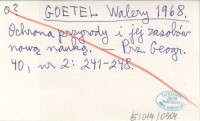 GOETEL Walery 1968.
Ochrona przyrody i jej zasobów
nową nauką. — Prz. Geogr.
40, nr 2: 241-248.